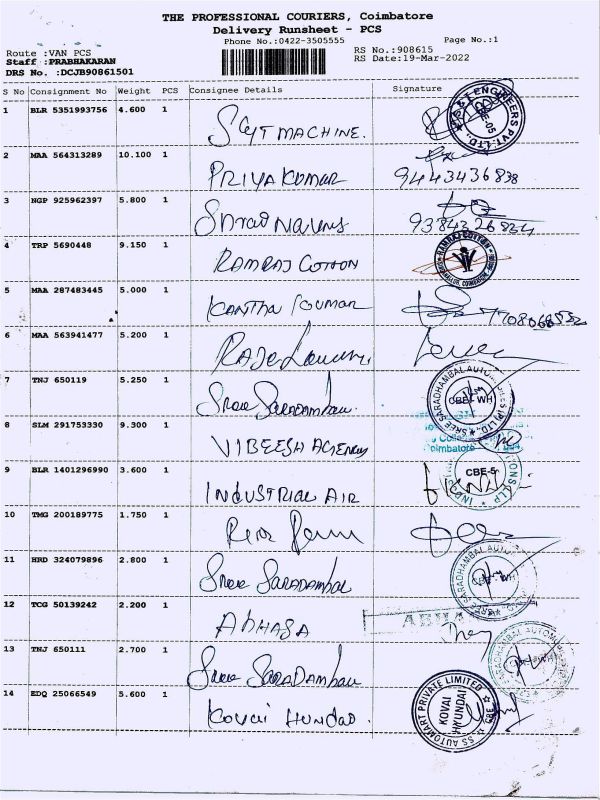 THE PROFESSIONAL COURIERS, Coimbatore
Delivery Runsheet - PCS
Phone No.:0422-3505555 Page No.:1
Route :VAN PCS RS No.:908615
Staff :PRABHAKARAN RS Date:19-Mar-2022
DRS No. :DCJB90861501
S No Consignment No Weight PCS Consignee Details Signature
1 BLR 5351993756 4.600 1 MACHINE.
2 MAA 564313289 10.100 1 PRIYA KUMAR 9443436838
3 NGP 925962397 5.800 1 9384326824
4 TRP 5690448 9.150 1 RAMRAJ COTTON
5 MAA 287483445 5.000 1 KANTHA KUMAR 7708068552
6 MAA 563941477 5.200 1
7 TNJ 650119 5.250 1 Sree SARADAMBAL
CBE WH
8 SLM 291753330 9.300 1 VIBEESH AGENCY
9 BLR 1401296990 3.600 1 INDUSTRIAL AIR CBE-5
10 TMG 200189775 1.750 1
11 HRD 324079896 2.800 1 Sree SARADAMBAL
12 TCG 50139242 2.200 1 ABHASA
13 TNJ 650111 2.700 1 Sree SARADAMBAL
14 EDQ 25066549 5.600 1 KOVAI HUNDAI.
SS AUTOMART PRIVATE LIMITED
KOVAI HYUNDAI
CBE